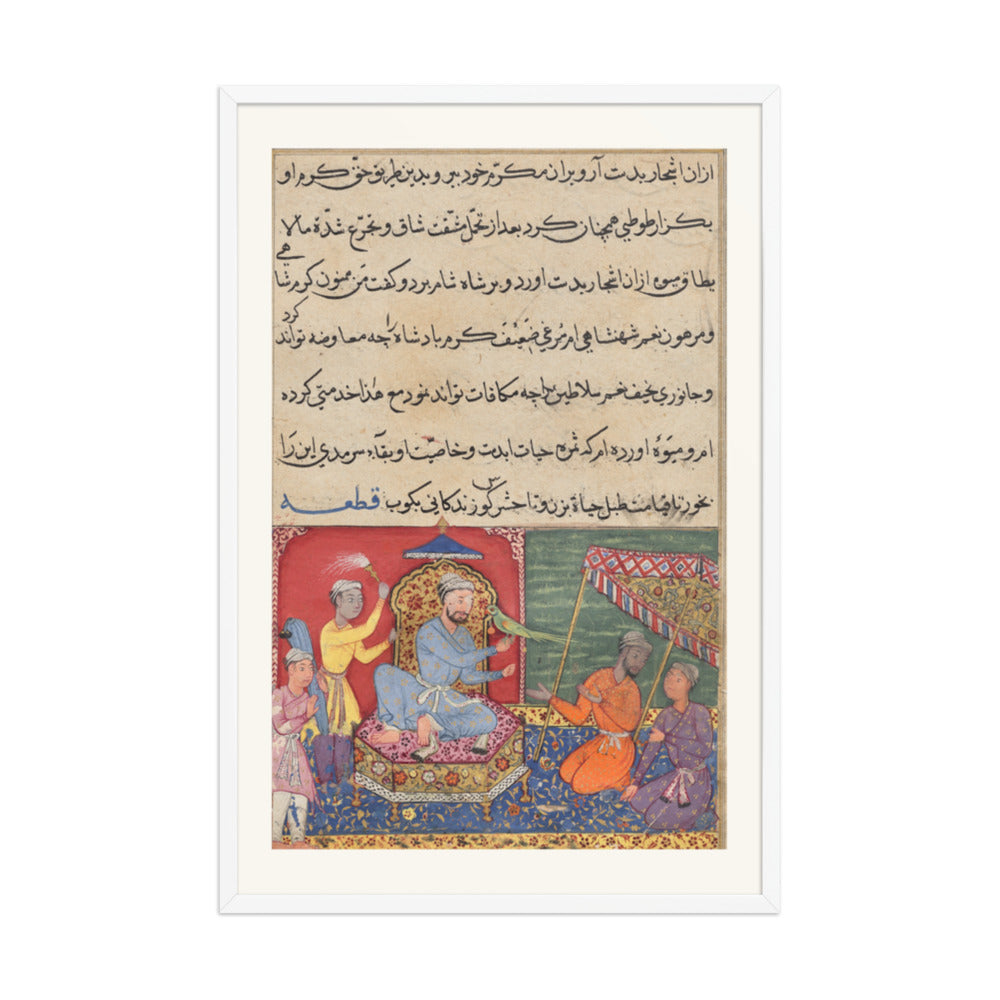 ازان اشجار بدست آر و بران مکرّم خود ببر و بدین طریق حق کرم او
بکزار طوطی همچنان کرد بعد از تحمّل مشقت شاق و تجرّع شدّة مالا
یطاق میوه ازان اشجار بدست اورد و بر شاه شام برد و کفت من ممنون کرم شاهی
و مرهون نعم شهنشاهی ام مرغی ضعیف کرم بادشاه را چه معاوضه تواند کرد
و جانوری نحیف نعم سلاطین را چه مکافات تواند نمود مع هذا خدمتی کرده
ام و میوهٔ اورده ام که ثمره حیات ابدست و خاصیّت او بقاء سرمدی این را
بخور تا قیامت طبل حیاة بزن و تا حشر کوس زندکانی بکوب قطعه